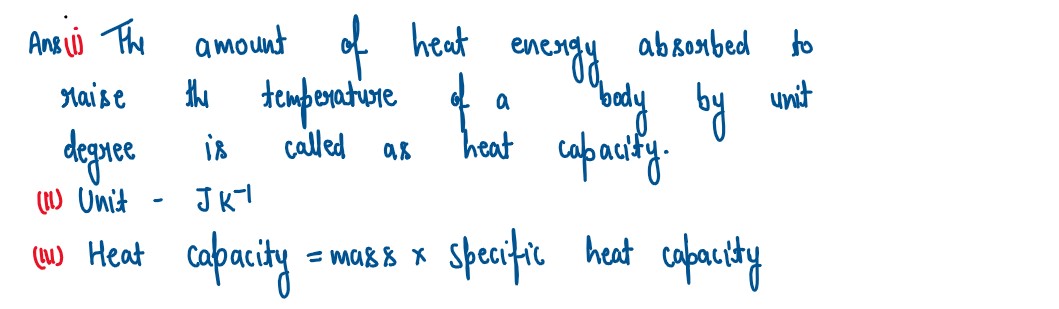 Ans(i) The amount of heat energy absorbed to
raise the temperature of a body by unit
degree is called as heat capacity.
(ii) Unit - JK⁻¹
(iii) Heat capacity = mass × specific heat capacity